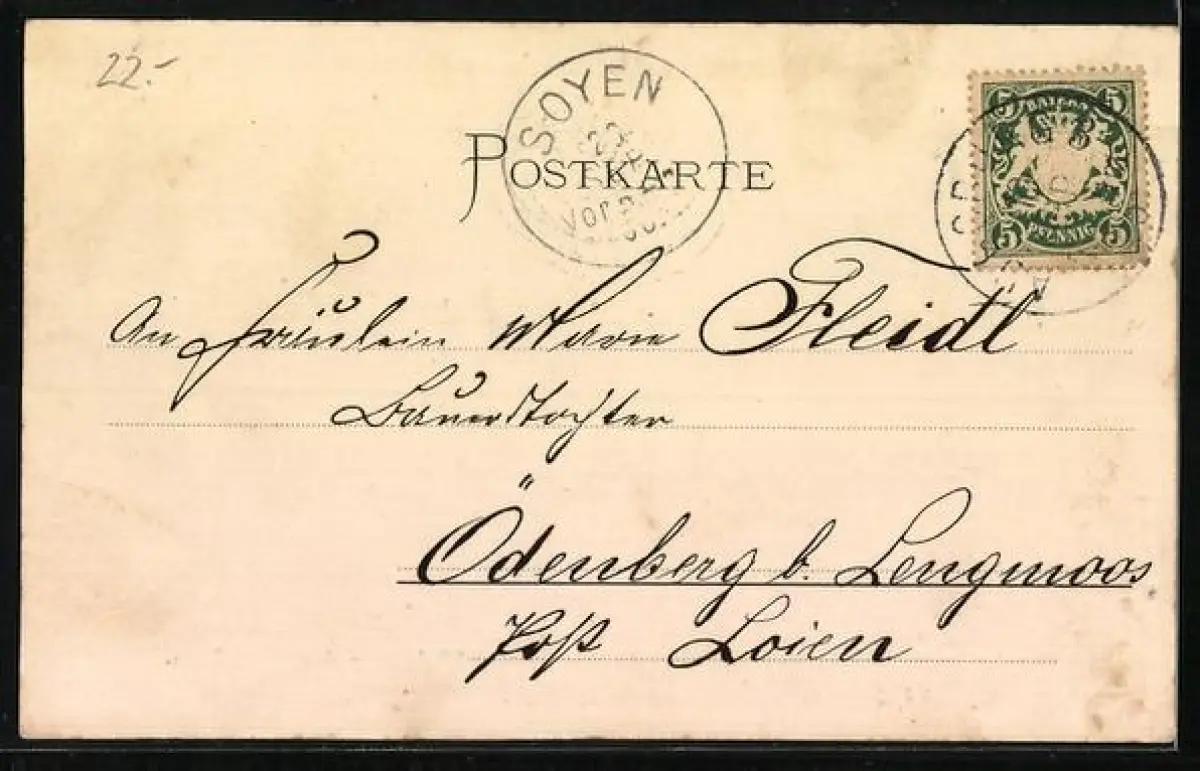 22.-
SOYEN
POSTKARTE
5 BAYERN 5
5 PFENNIG 5
An Fräulein Marie Fleidl
Bauerstochter
Ödenberg b. Lengmoos
Post Loien